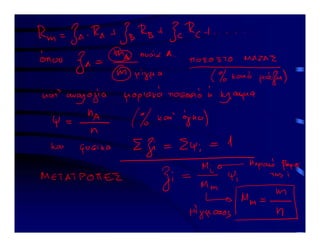 R_m = ξ_A · R_A + ξ_B R_B + ξ_C R_C + ......
όπου ξ_A = m_A ουσία A / m μίγμα ΠΟΣΟΣΤΟ ΜΑΖΑΣ
(% κατά μάζα)
κατ' αναλογία μοριακό ποσοστό ή κλάσμα
ψ = n_A / n (% κατ' όγκο)
και φυσικά Σξ_i = Σψ_i = 1
ΜΕΤΑΤΡΟΠΕΣ ξ_i = M_i / M_m ψ_i Μοριακό βάρος της i
μίγματος M_m = m / n